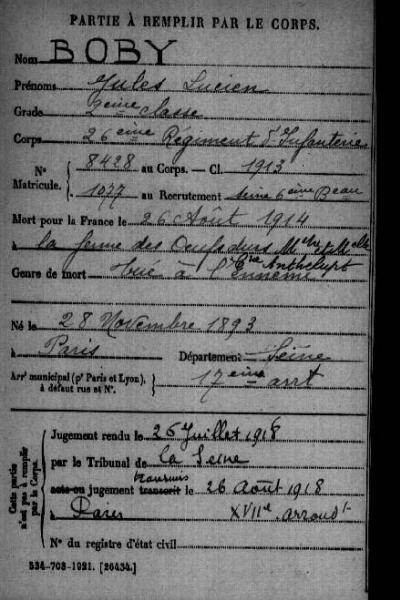 PARTIE À REMPLIR PAR LE CORPS.
Nom BOBY
Prénoms Jules Lucien
Grade 2eme classe
Corps 26eme Régiment d'Infanterie
N° Matricule. 8428 au Corps. — Cl. 1913
1077 au Recrutement Seine 6eme Beau
Mort pour la France le 26 Août 1914
à la ferme des Oeufs durs
Anthelupt
Genre de mort Tué à l'Ennemi
Né le 28 Novembre 1893
à Paris Département Seine
Arrt municipal (pr Paris et Lyon), à défaut rue et N°. 17eme arrt
Cette partie n'est pas à remplir par le Corps.
Jugement rendu le 26 Juillet 1918
par le Tribunal de la Seine
transcris
acte ou jugement transcrit le 26 Août 1918
à Paris XVIIe arrondt
N° du registre d'état civil
534-708-1921. [26434.]